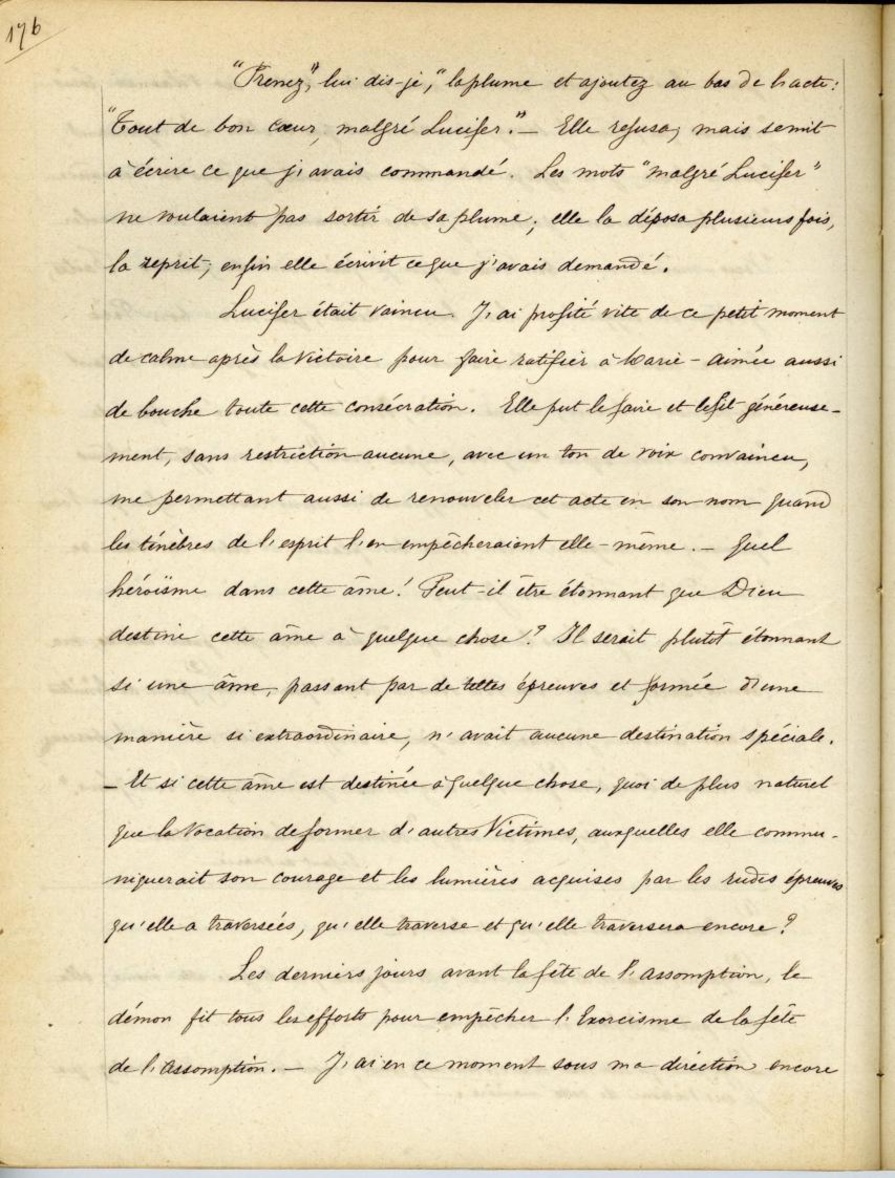 176
"Prenez", lui dis-je, "la plume et ajoutez au bas de l'acte:
"Tout de bon cœur, malgré Lucifer." — Elle refusa, mais se mit
à écrire ce que j'avais commandé. Les mots "malgré Lucifer"
ne voulaient pas sortir de sa plume; elle la déposa plusieurs fois,
la reprit; enfin elle écrivit ce que j'avais demandé.
Lucifer était vaincu. J'ai profité vite de ce petit moment
de calme après la victoire pour faire ratifier à Marie-Aimée aussi
de bouche toute cette consécration. Elle put le faire et le fit généreuse-
ment, sans restriction aucune, avec un ton de voix convaincu,
me permettant aussi de renouveler cet acte en son nom quand
les ténèbres de l'esprit l'en empêcheraient elle-même. — Quel
héroïsme dans cette âme! Peut-il être étonnant que Dieu
destine cette âme à quelque chose? Il serait plutôt étonnant
si une âme, passant par de telles épreuves et formée d'une
manière si extraordinaire, n'avait aucune destination spéciale.
— Et si cette âme est destinée à quelque chose, quoi de plus naturel
que la Vocation de former d'autres Victimes, auxquelles elle commu-
niquerait son courage et les lumières acquises par les rudes épreuves
qu'elle a traversées, qu'elle traverse et qu'elle traversera encore?
Les derniers jours avant la fête de l'Assomption, le
démon fit tous les efforts pour empêcher l'Exorcisme de la fête
de l'Assomption. — J'ai en ce moment sous ma direction encore